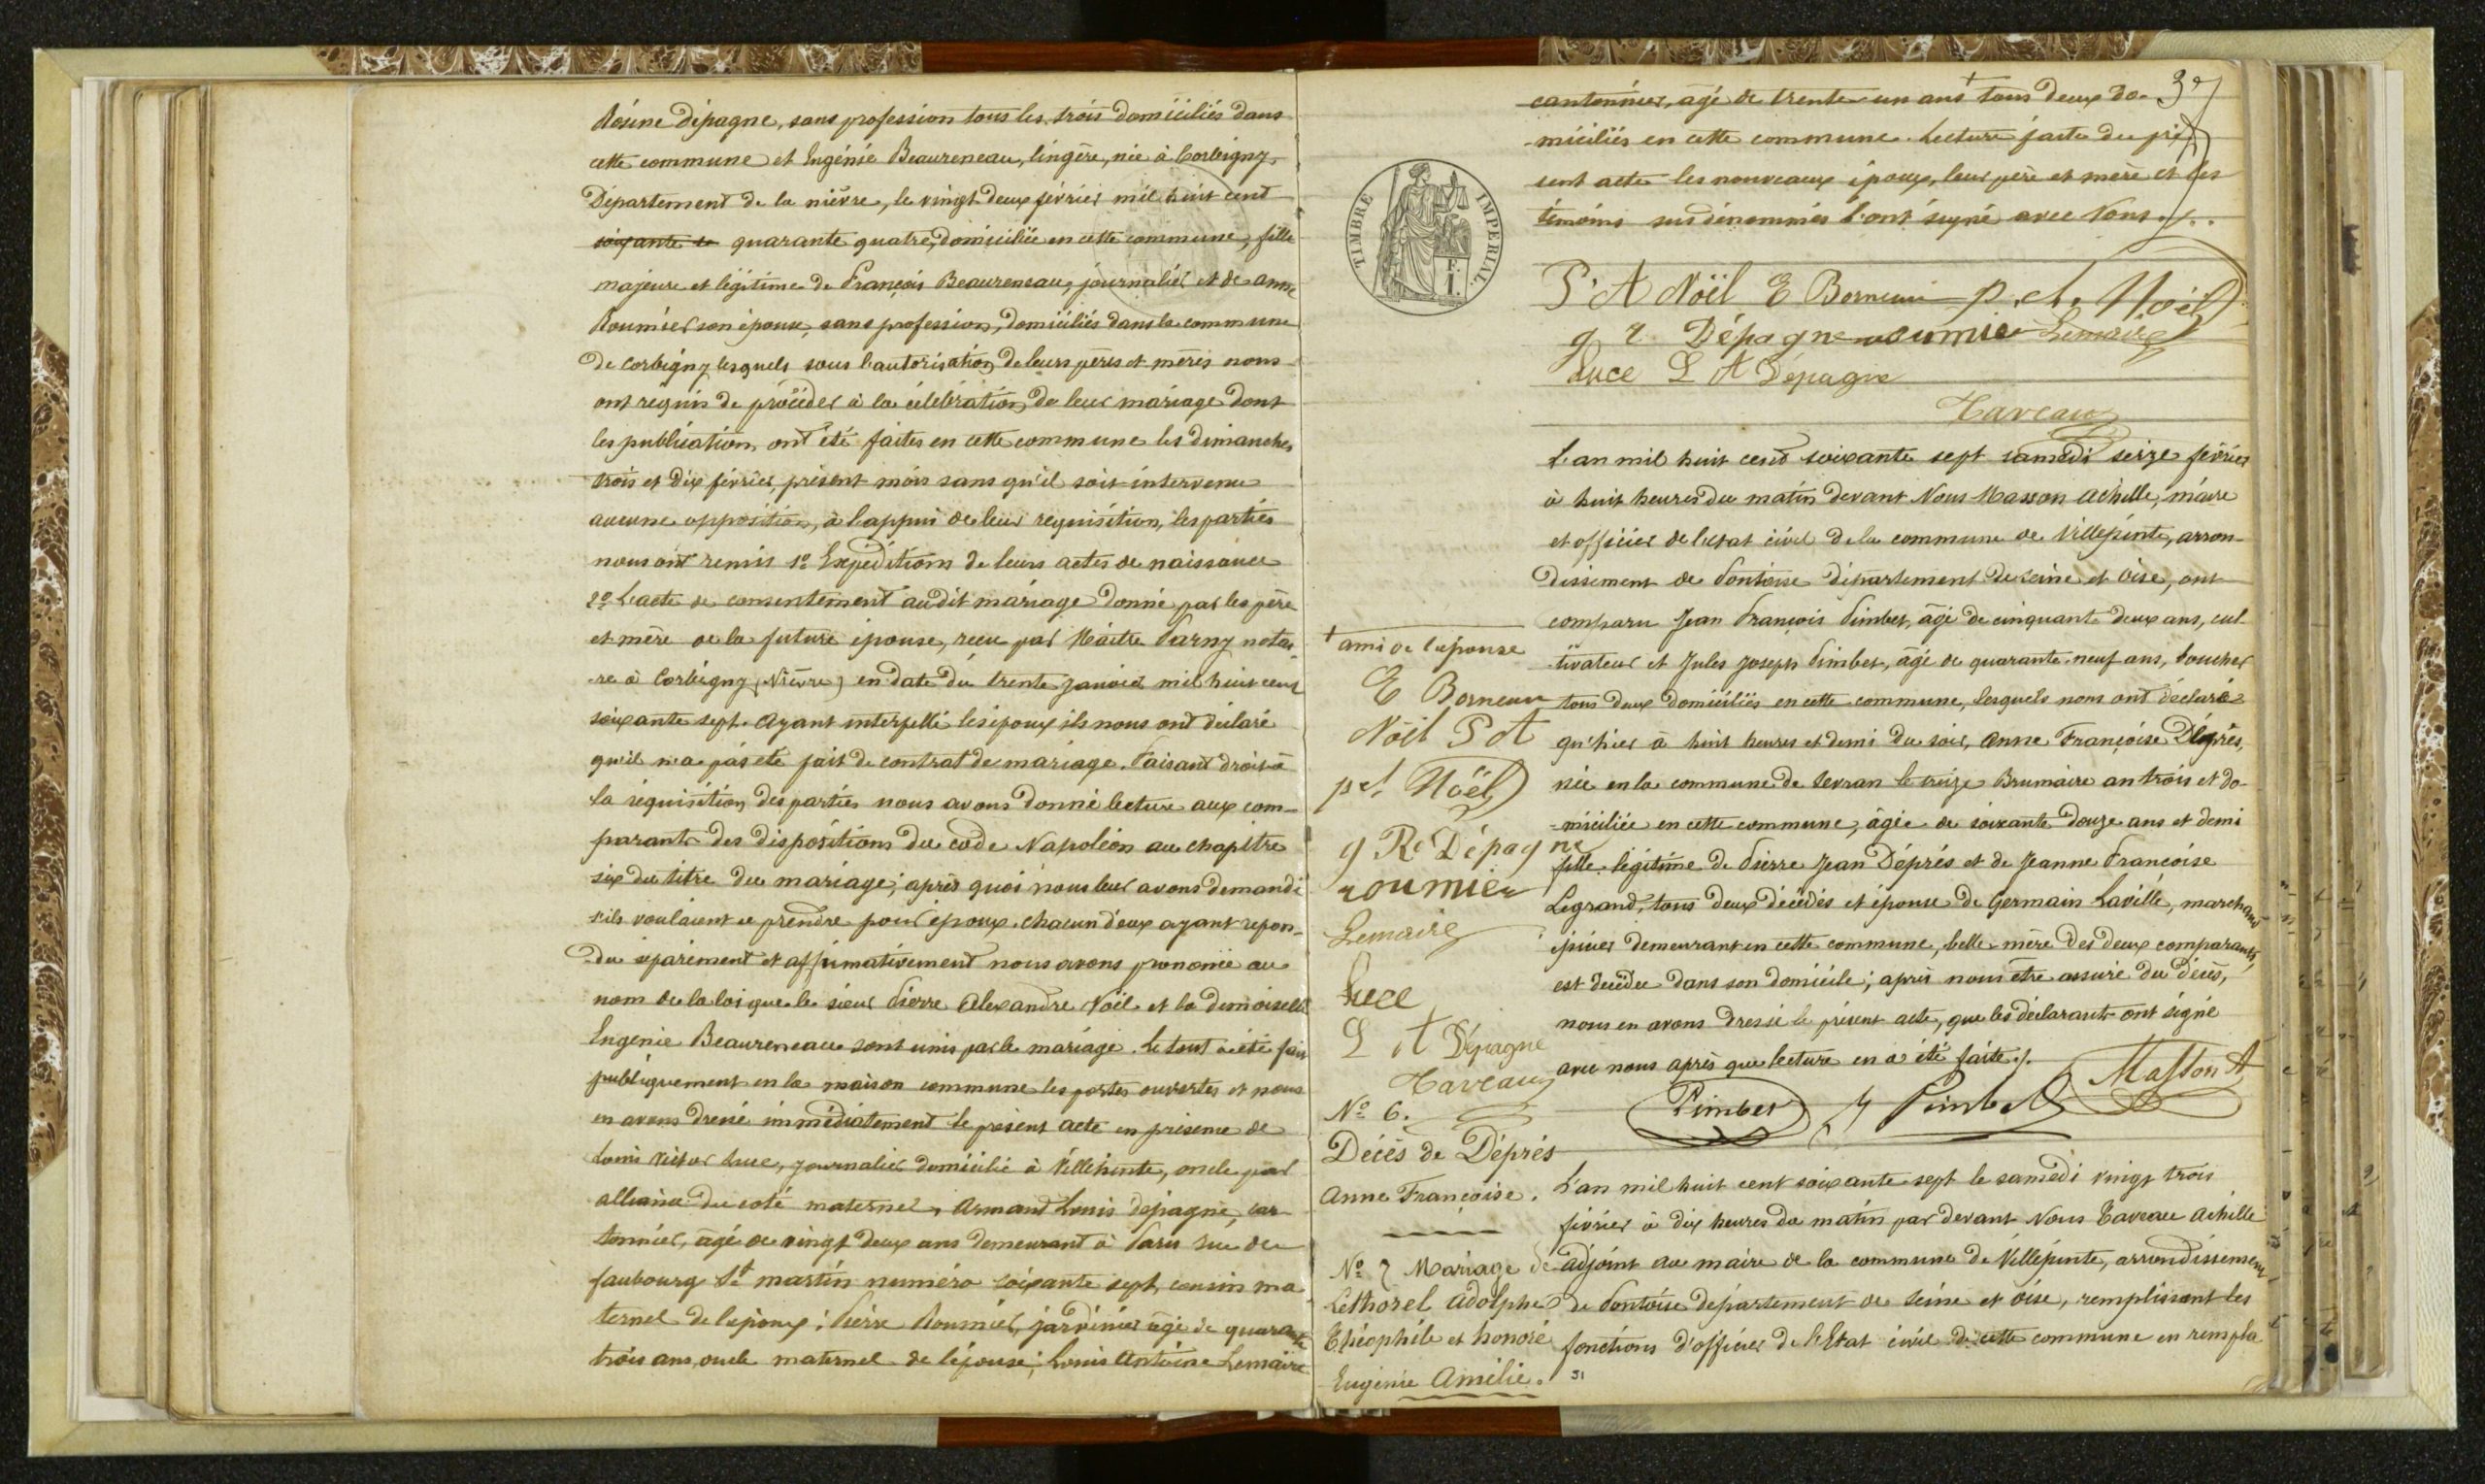 Rosine dépagne, sans profession tous les trois domiciliés dans
cette commune et Eugénie Beaureneau, lingère, née à Corbigny,
Département de la nièvre, le vingt deux février mil huit cent
soixante se quarante quatre, domiciliée en cette commune, fille
majeure et légitime de François Beaureneau, journalier et de anne
Roumier son épouse, sans profession, domiciliés dans la commune
de Corbigny lesquels sous l'autorisation de leurs pères et mères nous
ont requis de procéder à la célébration de leur mariage dont
les publication, ont été faites en cette commune les dimanches
trois et dix février, présent mois sans qu'il soit intervenu
aucune opposition, à l'appui de leur réquisition, les parties
nous ont remis 1º Expéditions de leurs actes de naissance
2º L'acte de consentement audit mariage donné par les père
et mère de la future épouse, recu par Maître Parny notai-
-re à Corbigny (Nièvre) en date du trente janvier mil huit cent
soixante sept. Ayant interpellé les époux ils nous ont déclaré
qu'il n'a pas été fait de contrat de mariage. Faisant droit à
la réquisition des parties nous avons donné lecture aux com-
parants des dispositions du code Napoléon au chapitre
six du titre du mariage; après quoi nous leur avons demandé
s'ils voulaient se prendre pour époux, chacun d'eux ayant répon-
-du séparément et affirmativement nous avons prononcé au
nom de la loi que le sieur Pierre Alexandre Noël et la demoiselle
Eugénie Beaureneau sont unis par le mariage. Le tout a été fait
publiquement en la maison commune les portes ouvertes et nous
en avons dressé immédiatement le présent acte en présence de
Louis Victor Luce, journalier domicilié à Villepinte, oncle par
alliance du coté maternel, Armand Louis dépagne, can
tonnier, âgé de vingt deux ans demeurant à Paris rue du
faubourg St martin numéro soixante sept, cousin ma
ternel de l'époux; Pierre Roumier, jardinier âgé de quarante
trois ans, oncle maternel de l'épouse; Louis Antoine Lemaire
37
cantonnier, âgé de trente un ans + tous deux do-
-miciliés en cette commune. Lecture faite du pré
sent acte les nouveaux époux, leur père et mère et les
témoins sus dénommés l'ont signé avec Nous./..
TIMBRE IMPERIAL
P. A Noël E Borneau p. ch. Noël
g r Dépagne roumier Lemaire
Luce L A Dépagne
Taveau
+ ami de l'épouse
E Borneau
Noël P A
p ch Noël
g Re Dépagne
roumier
Lemaire
Luce
L A Dépagne
Taveau
Nº 6.
Décès de Déprés
Anne Françoise.
L'an mil huit cent soixante sept samedi seize février
à huit heures du matin devant Nous Masson Achille, maire
et officier de l'état civil de la commune de Villepinte, arron-
dissement de Pontoise département de Seine et Oise, ont
comparu Jean François Pimbet, âgé de cinquante deux ans, cul
tivateur et Jules Joseph Pimbet, âgé de quarante neuf ans, boucher
tous deux domiciliés en cette commune, lesquels nous ont déclaré
qu'hier à huit heures et demi du soir, Anne Françoise Déprés,
née en la commune de Sevran le treize Brumaire an trois et do-
-miciliée en cette commune, âgée de soixante douze ans et demi
fille légitime de Pierre Jean Déprés et de Jeanne Francoise
Legrand, tous deux décédés et épouse de Germain Lavillé, marchand
épicier demeurant en cette commune, belle-mère des deux comparants,
est décédée dans son domicile; après nous être assuré du décès,
nous en avons dressé le présent acte, que les déclarants ont signé
avec nous après que lecture en a été faite ./.
Pimbet J Pimbet Masson A
Nº 7 Mariage de
Lethorel Adolphe
Théophile et honoré
Eugénie Amélie.
L'an mil huit cent soixante sept le samedi vingt trois
février à dix heures du matin par devant Nous Taveau Achille
adjoint au maire de la commune de Villepinte, arrondissement
de Pontoise département de Seine et Oise, remplissant les
fonctions d'officier de l'Etat civil de cette commune en rempla
31